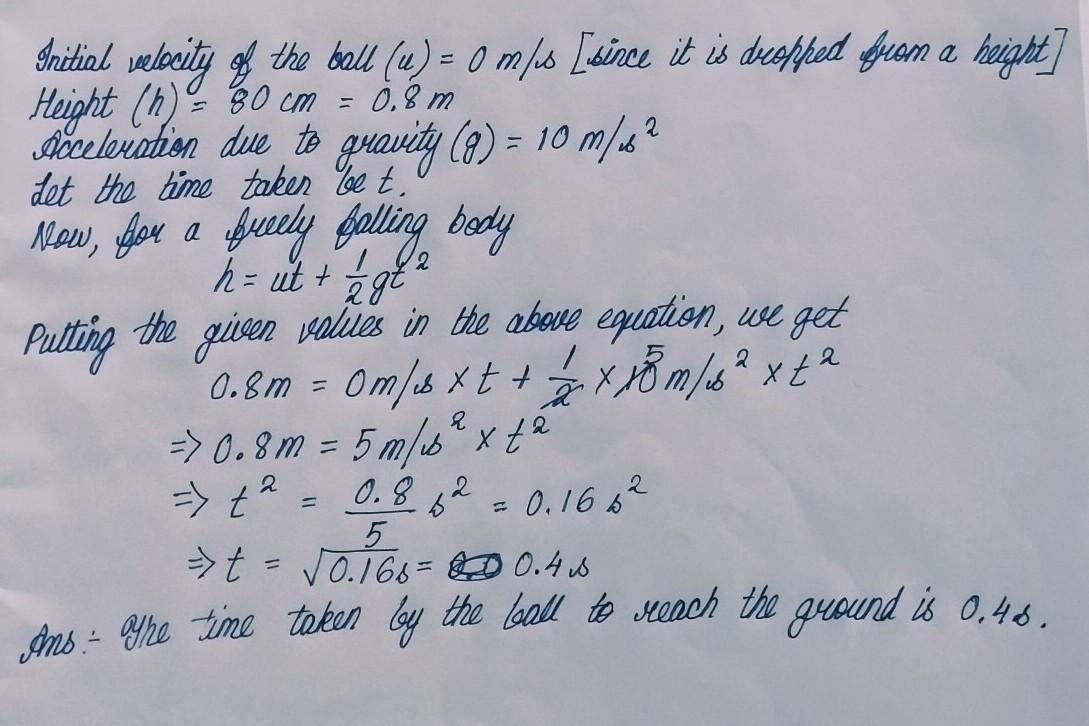 Initial velocity of the ball (u) = 0 m/s [since it is dropped from a height]
Height (h) = 80 cm = 0.8 m
Acceleration due to gravity (g) = 10 m/s²
Let the time taken be t.
Now, for a freely falling body
h = ut + 1/2 gt²
Putting the given values in the above equation, we get
0.8m = 0m/s × t + 1/2 × 10 5 m/s² × t²
=> 0.8m = 5m/s² × t²
=> t² = 0.8/5 s² = 0.16 s²
=> t = √0.16s = 0.4s
Ans :- The time taken by the ball to reach the ground is 0.4s.